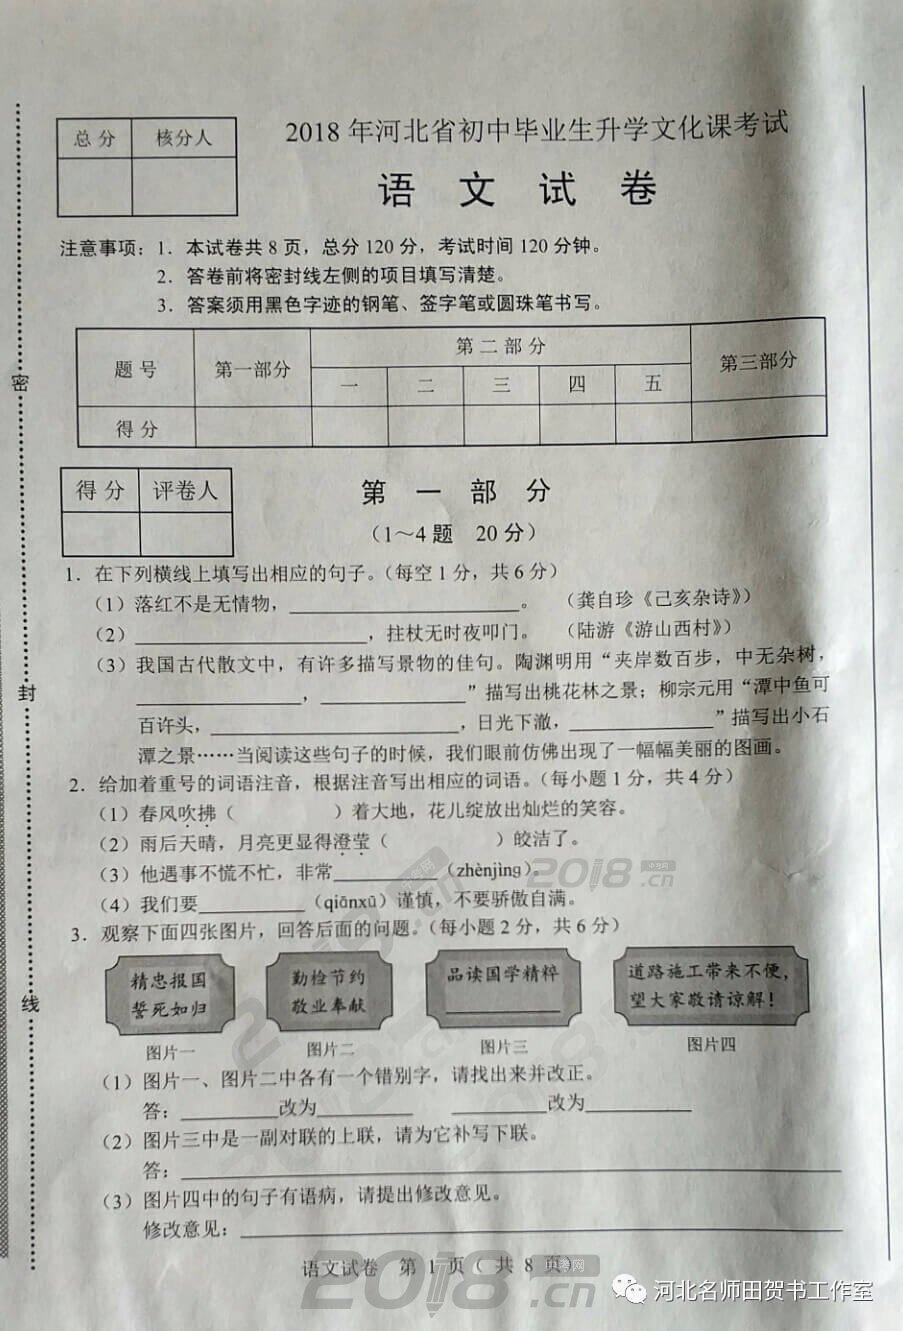 总分 核分人
2018 年河北省初中毕业生升学文化课考试
语 文 试 卷
注意事项：1．本试卷共 8 页，总分 120 分，考试时间 120 分钟。
2．答卷前将密封线左侧的项目填写清楚。
3．答案须用黑色字迹的钢笔、签字笔或圆珠笔书写。
题 号 第一部分 第 二 部 分 第三部分
一 二 三 四 五
得 分
得 分 评卷人
第 一 部 分
（1～4 题 20 分）
1．在下列横线上填写出相应的句子。（每空 1 分，共 6 分）
（1）落红不是无情物，____________________。 （龚自珍《己亥杂诗》）
（2）____________________，拄杖无时夜叩门。 （陆游《游山西村》）
（3）我国古代散文中，有许多描写景物的佳句。陶渊明用“夹岸数百步，中无杂树，
______________，______________”描写出桃花林之景；柳宗元用“潭中鱼可
百许头，____________________，日光下澈，______________”描写出小石
潭之景……当阅读这些句子的时候，我们眼前仿佛出现了一幅幅美丽的图画。
2．给加着重号的词语注音，根据注音写出相应的词语。（每小题 1 分，共 4 分）
（1）春风吹拂（ ）着大地，花儿绽放出灿烂的笑容。
（2）雨后天晴，月亮更显得澄莹（ ）皎洁了。
（3）他遇事不慌不忙，非常__________（zhènjìng）。
（4）我们要__________（qiānxū）谨慎，不要骄傲自满。
3．观察下面四张图片，回答后面的问题。（每小题 2 分，共 6 分）
精忠报国
誓死如归
勤检节约
敬业奉献
品读国学精粹
____________
道路施工带来不便，
望大家敬请谅解！
图片一 图片二 图片三 图片四
（1）图片一、图片二中各有一个错别字，请找出来并改正。
答：__________改为__________ __________改为__________
（2）图片三中是一副对联的上联，请为它补写下联。
答：____________________
（3）图片四中的句子有语病，请提出修改意见。
修改意见：____________________
语文试卷 第 1 页（ 共 8 页）
密
封
线
2018.cn
中考网
2018.cn
中考网
河北名师田贺书工作室